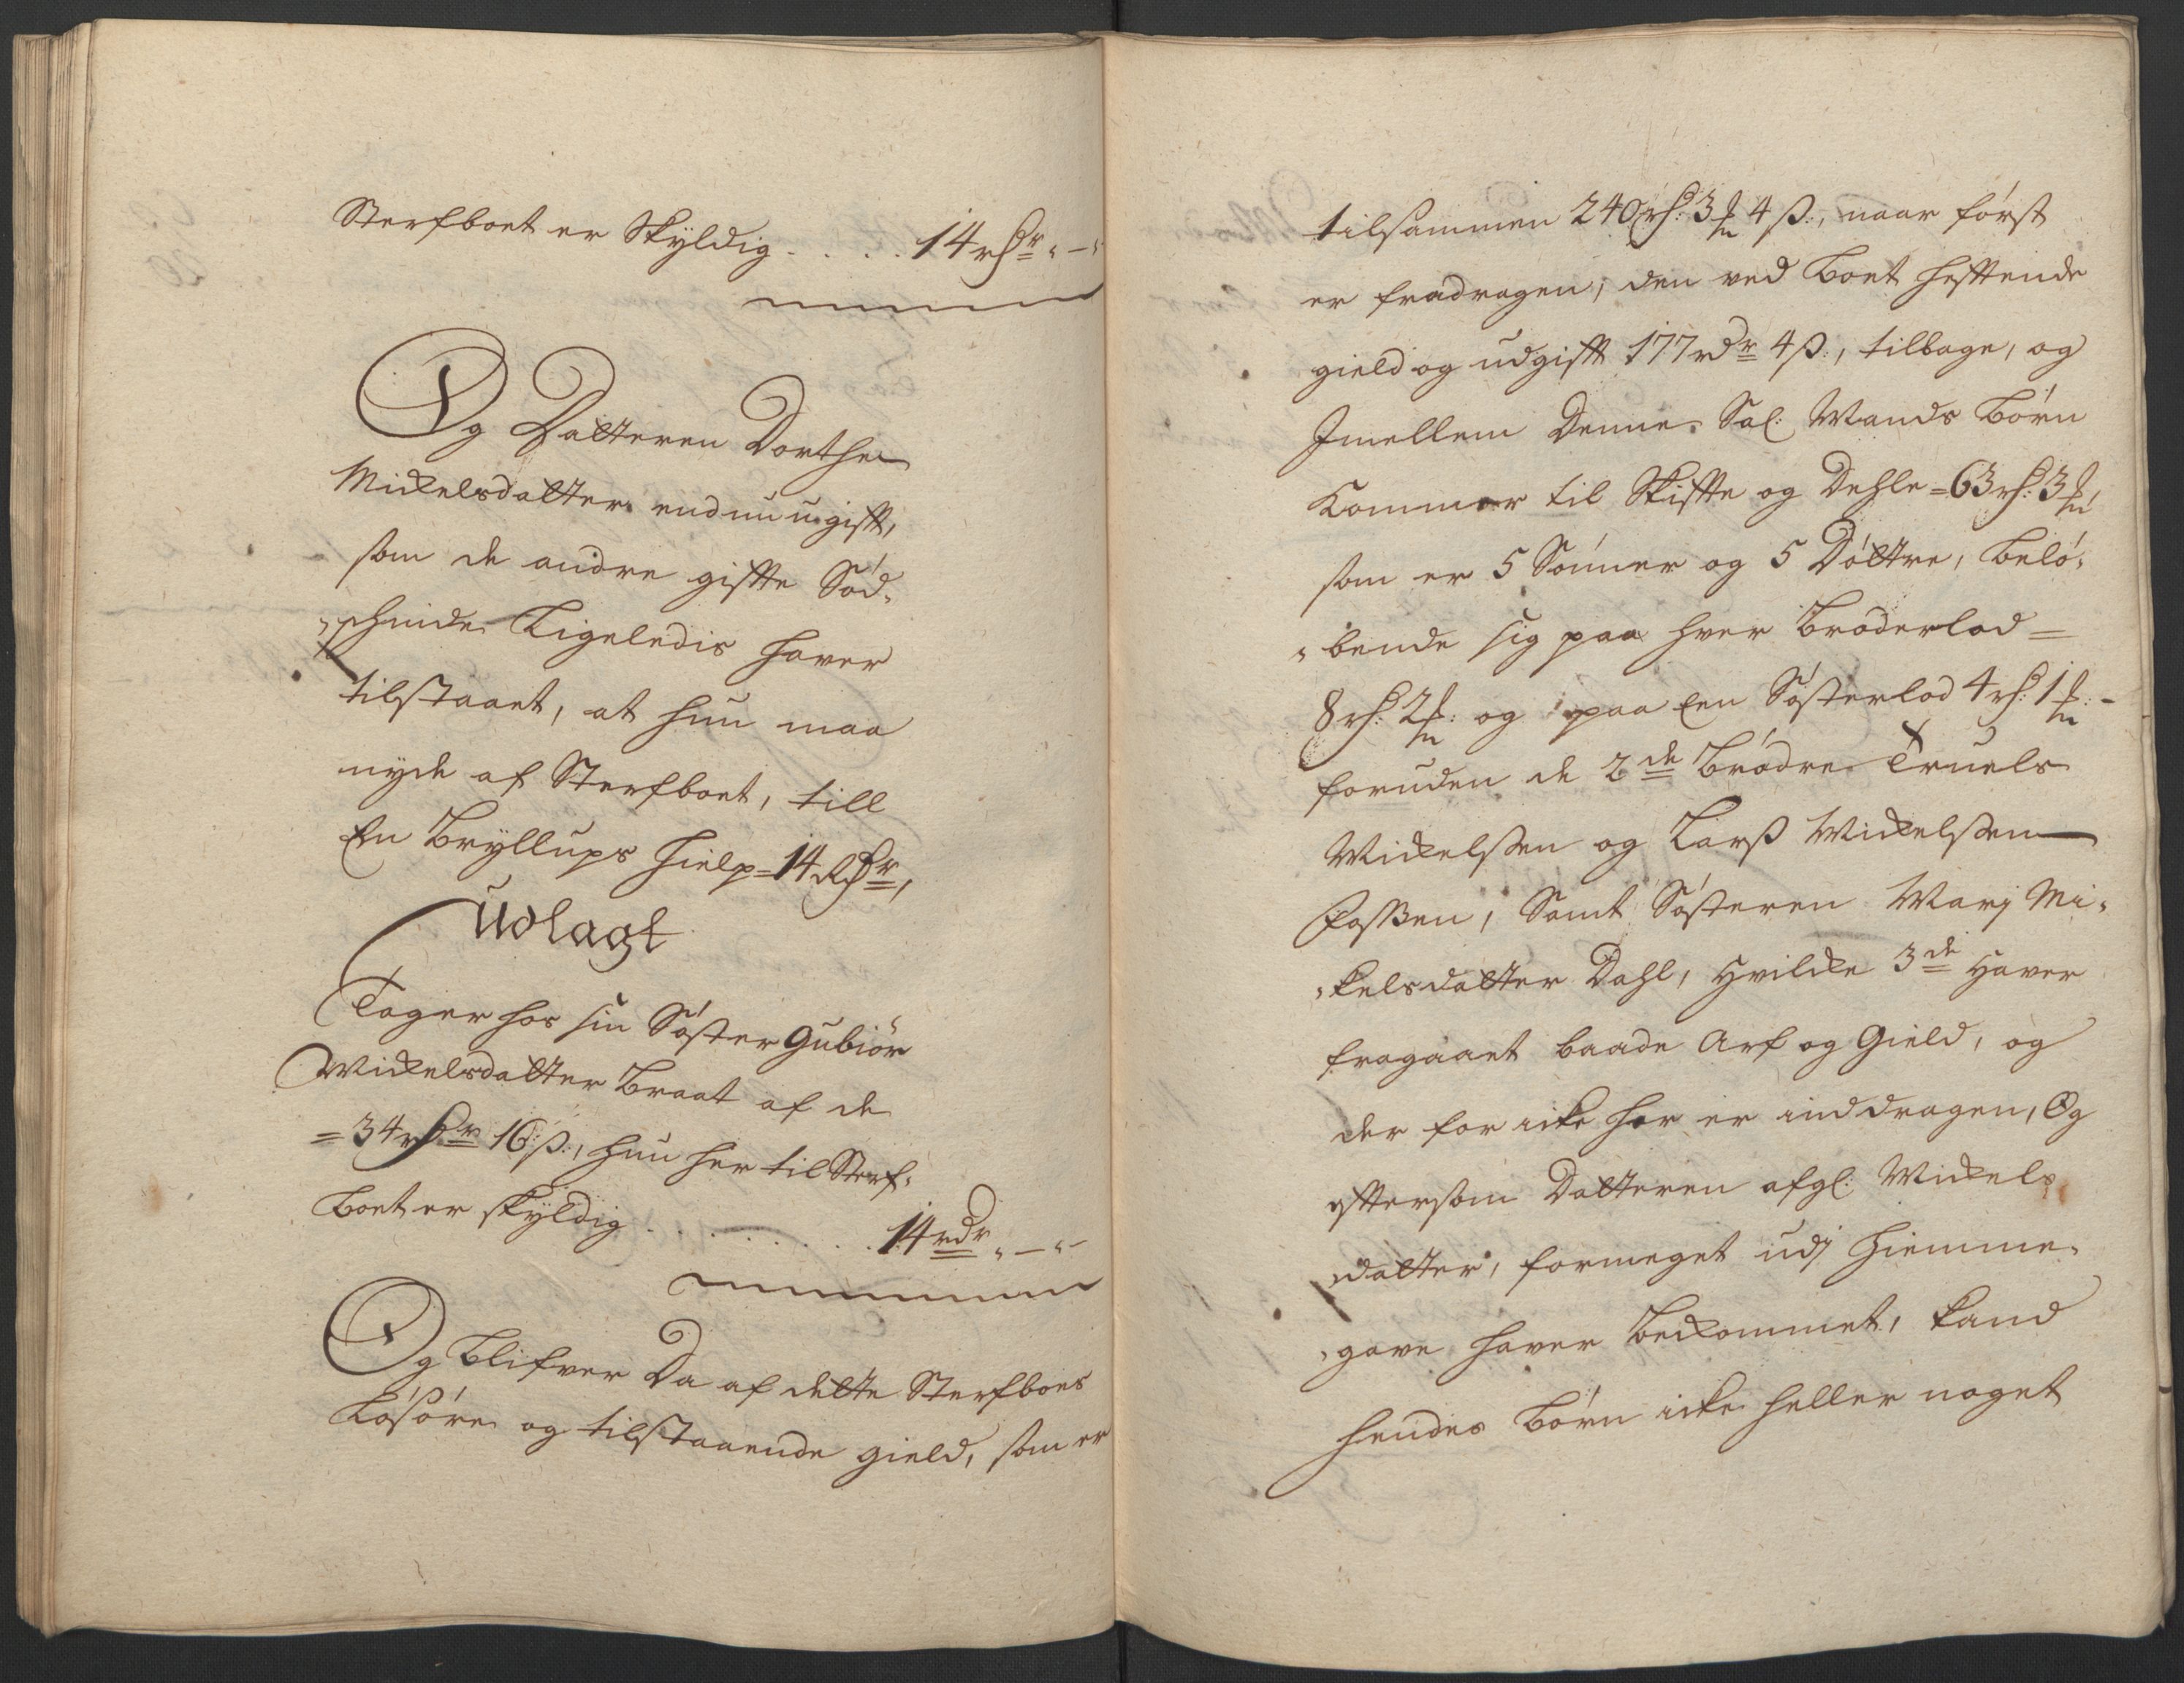 Sterfboet er Skyldig . . . . 14 rdr " – "
Og Datteren Dorthe
Mickelsdatter endnu ugift,
som de andre gifte Sød-
"schende Ligeledis haver
tilstaaet, at hun maa
nyde af Sterfboet, till
En Bryllups hielp = 14 Rdr,
Udlagt
Tager hos sin Søster Gubiør
Mickelsdatter Braat af de
= 34 rdr 16 ß:, hun her til Sterf-
boet er skyldig . . . . . . . . . 14 rdr " – " –
Og blifver Da af dette Sterfboes
Løsøre og tilstaaende gield, som er
tilsammen 240 rd: 3 ß 4 ß:, naar først
er fradragen, den ved boet hefftende
gield og udgifft 177 rdr 4 ß:, tilbage, og
Imellem Denne Sal: Mands Børn
Kommer til Skiffte og Dehle = 63 rd: 3
som er 5 Sønner og 5 Døttre, belø-
"bende sig paa hver Broderlod =
8 rd: 2 og paa Een Søsterlod 4 rd: 1 –
foruden de 2de Brødre Truels
Mickelssen og Larss Mickelssen
Fossen, Samt Søsteren Marj Mi-
"kelsdatter Dahl, Hvilcke 3de Haver
fragaaet baade Arf og Gield, og
der for icke her er inddragen, Og
efftersom Datteren afgl: Mickels
datter, formeget udj hiemme-
"gave haver Beckommet, kand
hendes Børn icke heller noget